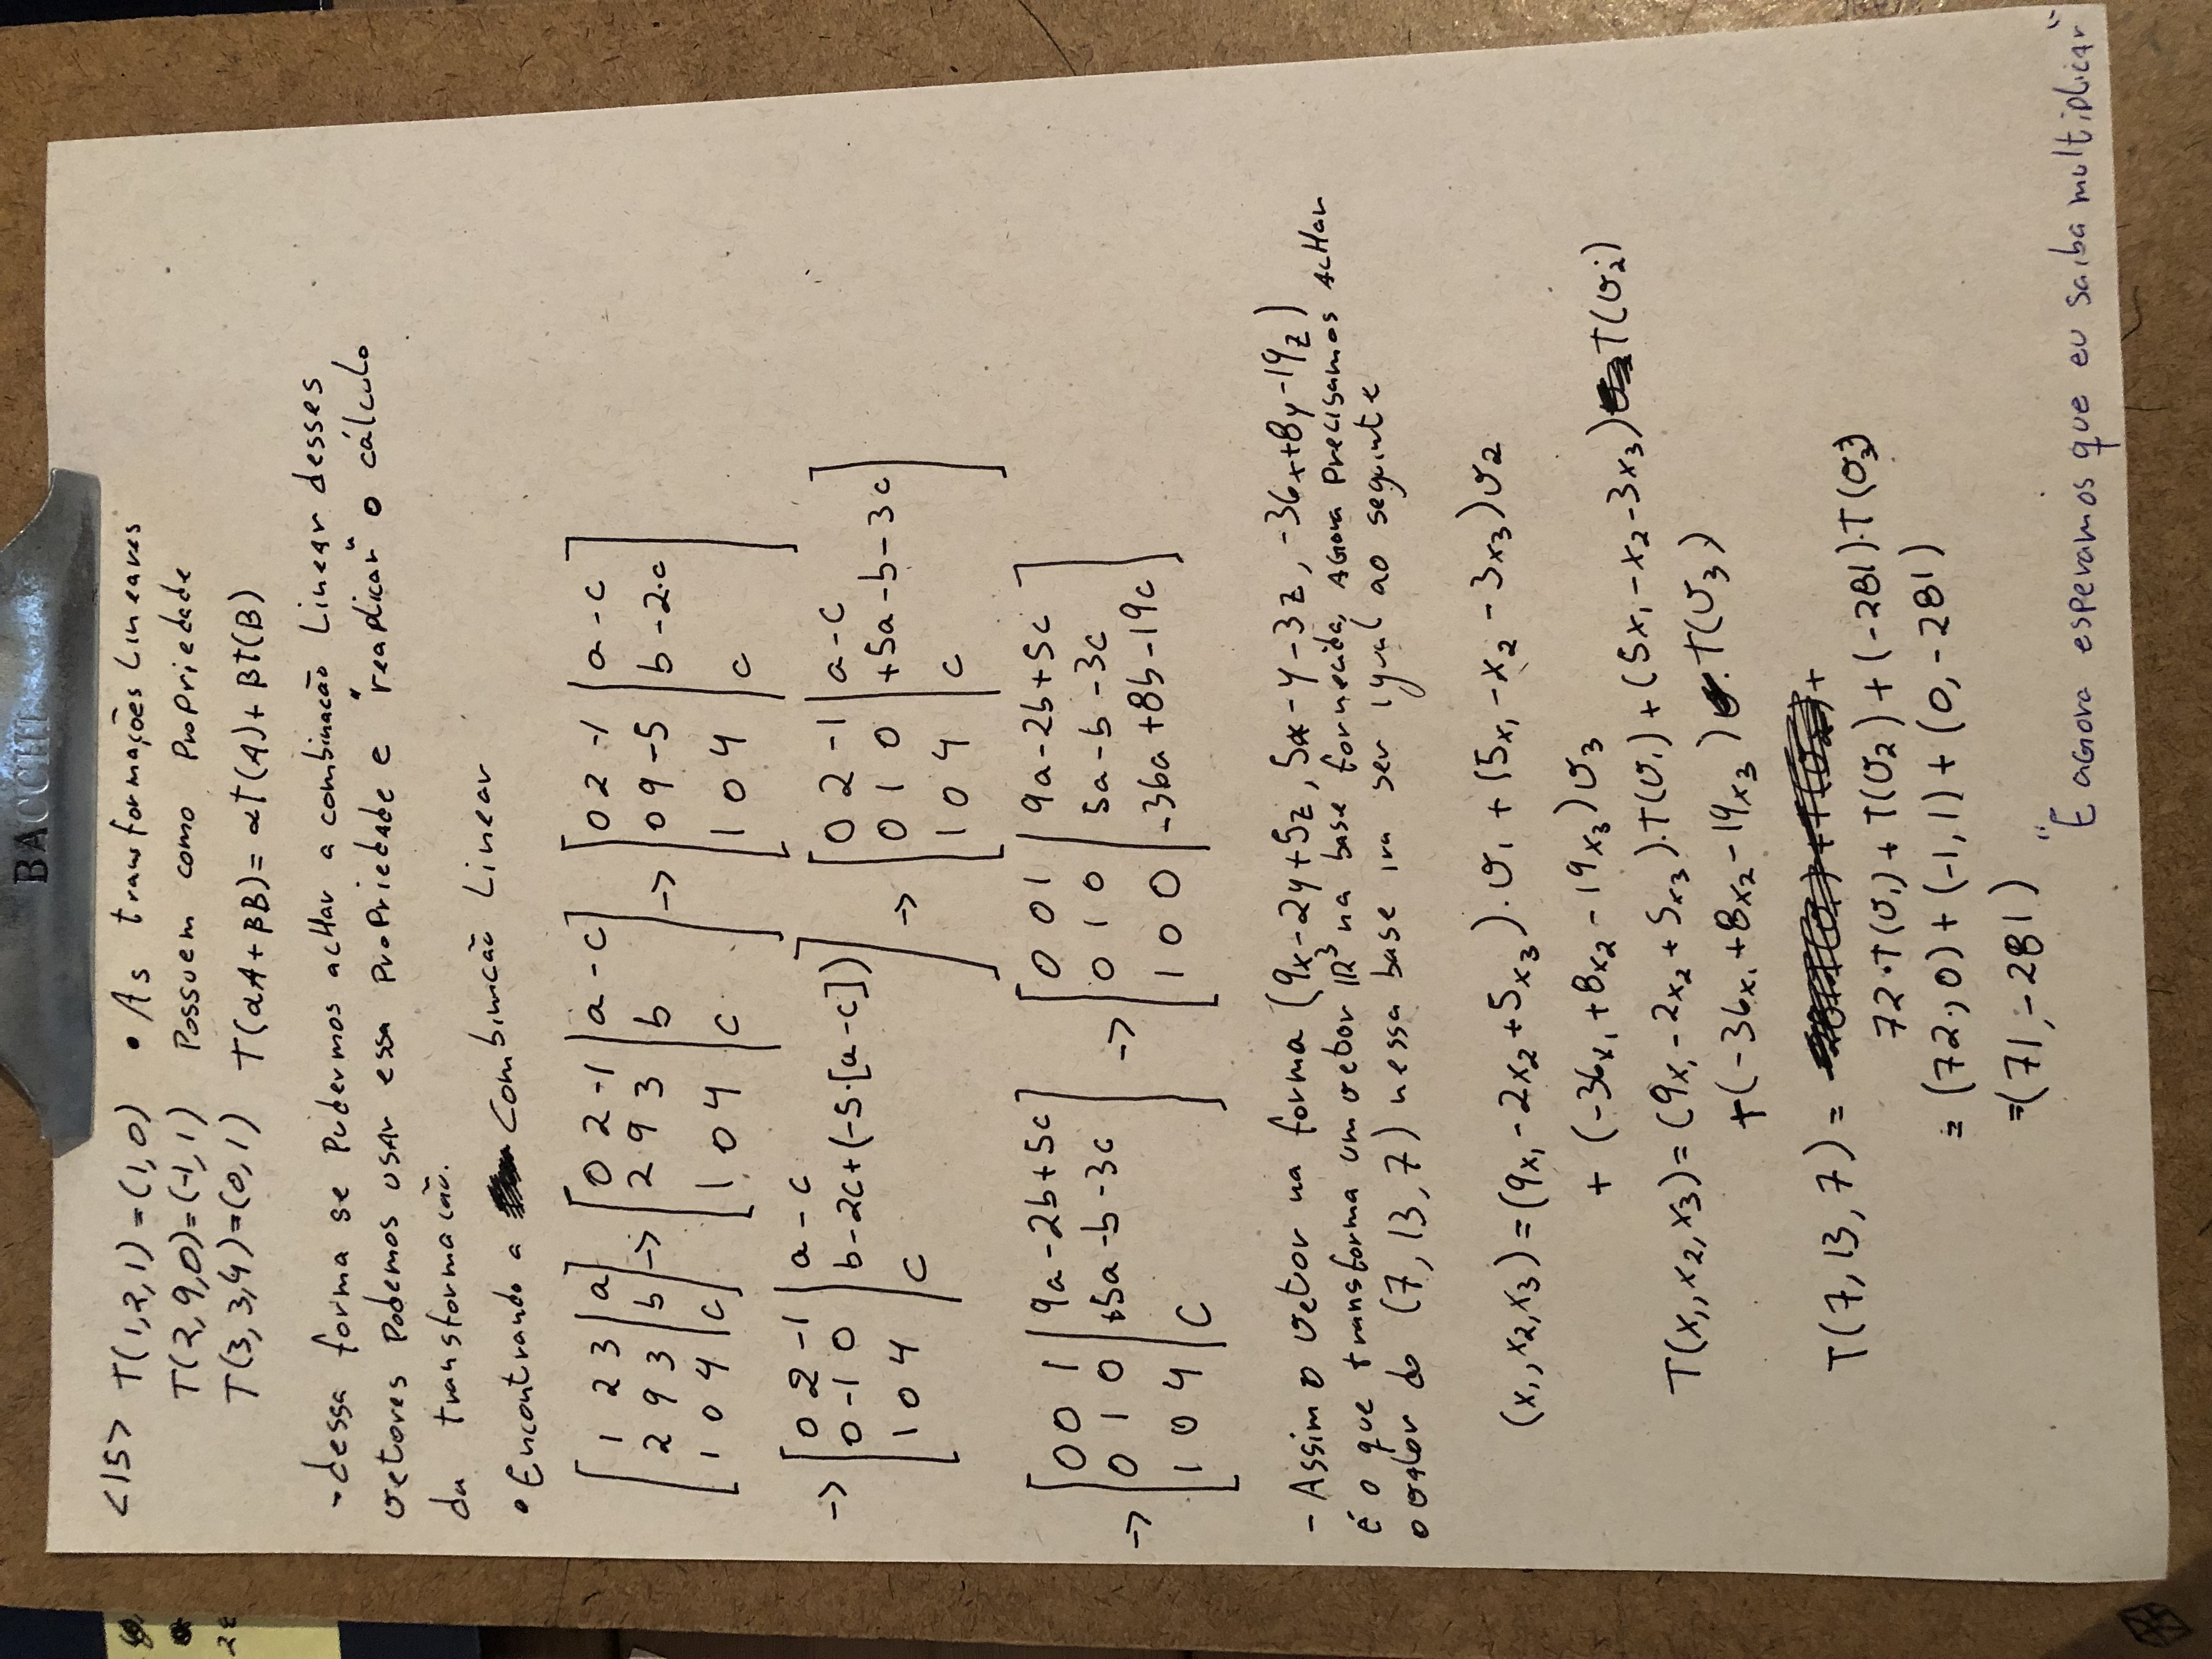 BACCHI
<15> T(1,2,1)=(1,0) • As transformações Lineares
T(2,9,0)=(-1,1) Possuem como ProPriedade
T(3,3,4)=(0,1) T(αA+βB)= αT(A)+βT(B)
-dessa forma se Pudermos acHar a combinacão Linear desses
vetores Podemos usAr essa ProPriedade e "reaplicar" o cálculo
da transformacão.
• Encontrando a Combinacão Linear
[1 2 3 | a] [0 2 -1 | a - c] [0 2 -1 | a - c]
[2 9 3 | b] -> [2 9 3 | b] -> [0 9 -5 | b - 2·c]
[1 0 4 | c] [1 0 4 | c] [1 0 4 | c]
[0 2 -1 | a - c] [0 2 -1 | a - c]
-> [0 -1 0 | b-2c+(-5·[a-c])] -> [0 1 0 | +5a-b-3c]
[1 0 4 | c] [1 0 4 | c]
[0 0 1 | 9a-2b+5c] [0 0 1 | 9a-2b+5c]
-> [0 1 0 | +5a-b-3c] -> [0 1 0 | 5a-b-3c]
[1 0 4 | c] [1 0 0 | -36a+8b-19c]
- Assim o vetor na forma (9x-2y+5z, 5x-y-3z, -36x+8y-19z)
é o que transforma um vetor ℝ³ na base fornecida, AGora Precisamos AcHar
o valor do (7,13,7) nessa base ira ser igual ao seguinte
(x₁,x₂,x₃)=(9x₁-2x₂+5x₃)·v₁+(5x₁-x₂-3x₃)v₂
+ (-36x₁+8x₂-19x₃)v₃
T(x₁,x₂,x₃)=(9x₁-2x₂+5x₃)·T(v₁)+(5x₁-x₂-3x₃)T(v₂)
+(-36x₁+8x₂-19x₃)·T(v₃)
T(7,13,7)= +
72·T(v₁)+T(v₂)+(-281)·T(v₃)
=(72,0)+(-1,1)+(0,-281)
=(71,-281)
"E aGora esperamos que eu saiba multiplicar"